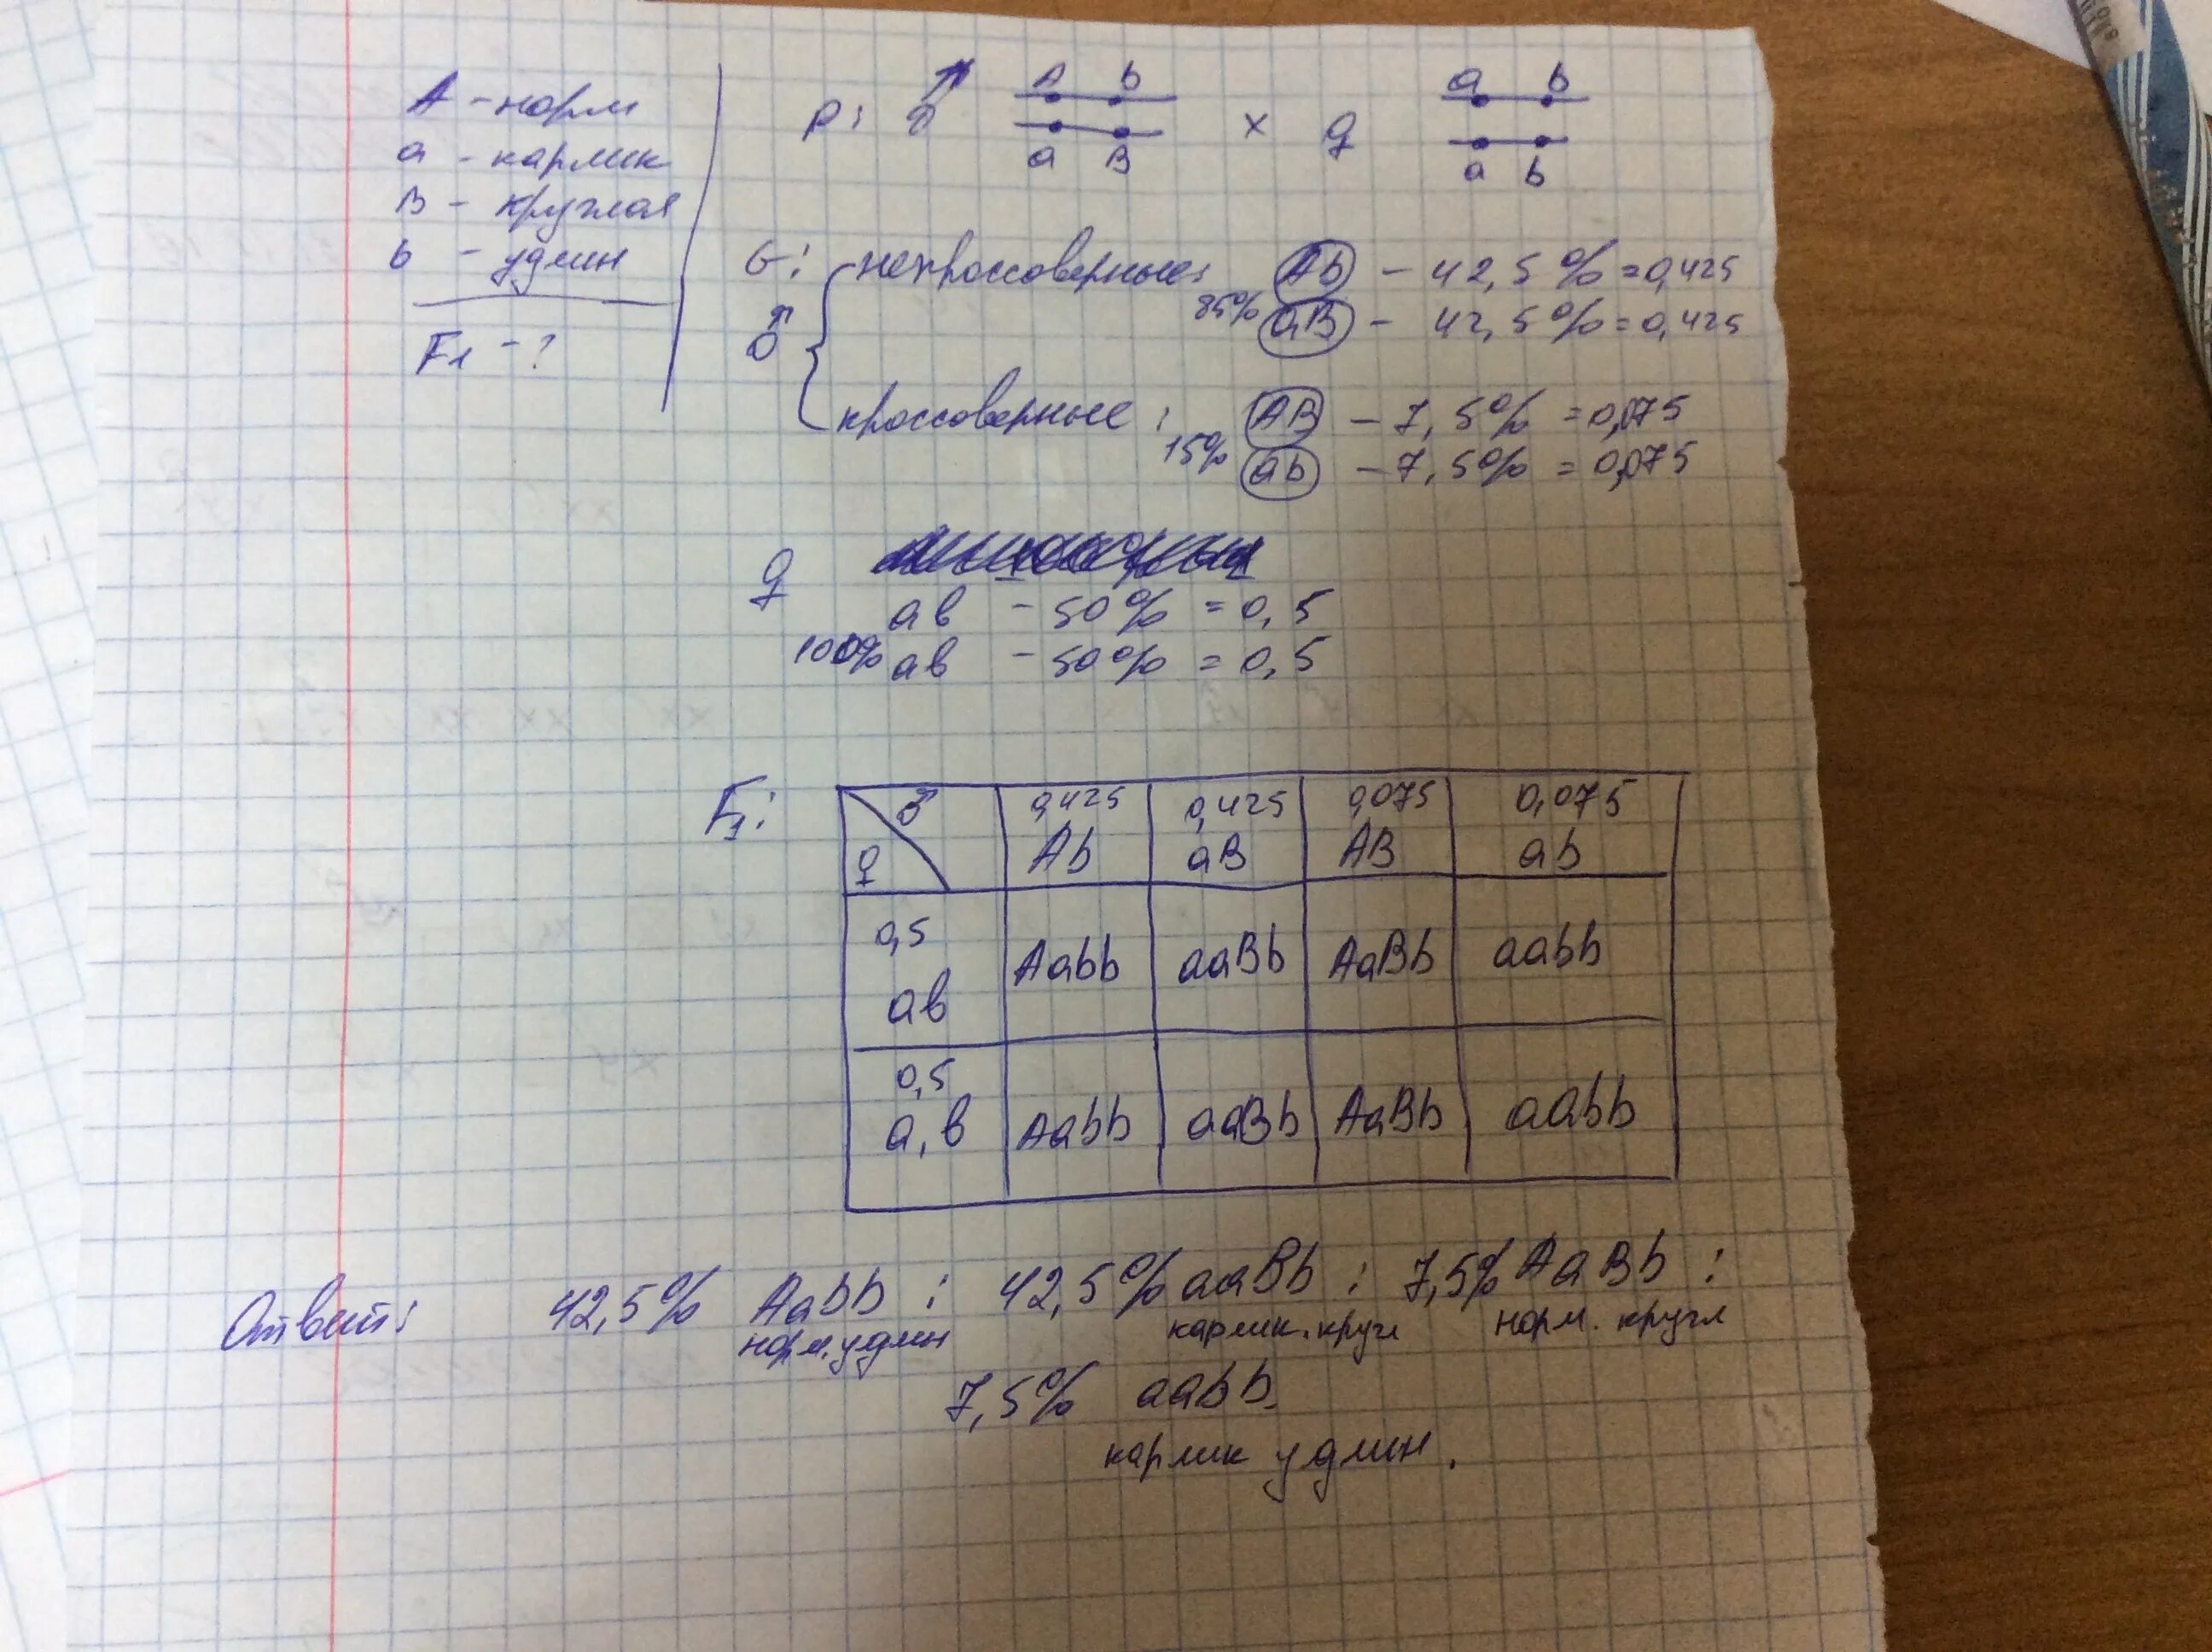 A - норм
а - карлик
B - круглая
b - удлин
F1 - ?
P: ♂ A b × ♀ a b
a B a b
G: некроссоверные: Ab - 42,5% = 0,425
♂ 85% aB - 42,5% = 0,425
кроссоверные: AB - 7,5% = 0,075
15% ab - 7,5% = 0,075
♀
ав - 50% = 0,5
100% ав - 50% = 0,5
F1: ♂ 0,425 0,425 0,075 0,075
♀ Ab aB AB ab
0,5
ав Aabb aaBb AaBb aabb
0,5
а,в Aabb aaBb AaBb aabb
Ответ: 42,5% Aabb : 42,5% aaBb : 7,5% AaBb :
норм. удлин карлик. кругл норм. кругл
7,5% aabb
карлик удлин.